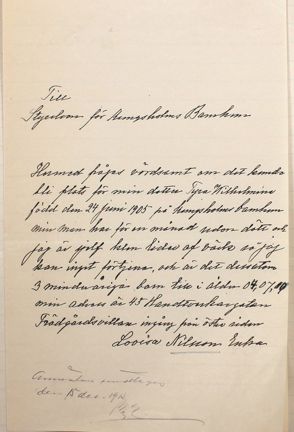 Till
Styrelsen för Kungsholms Barnhem
Härmed frågas vördsamt om det kunde
bli plats för min dotter Tyra Wilhelmina
född den 24 juni 1905 på Kungsholms barnhem
min man har för en månad sedan dött och
jag är sjelf klen lider af värk så jag
kan inget förtjena, och är det dessutom
3 minderåriga barn till i ålder 04, 07, 09
min adress är 45 Handtverkargatan
Trädgårdsvillan ingång från östra sidan
Lovisa Nilsson Enka
den 15 dec. 191